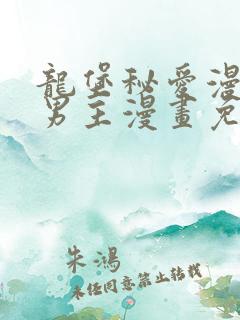 龍堡秘愛漫
男主漫畫免
朱鴻
未經同意禁止轉載